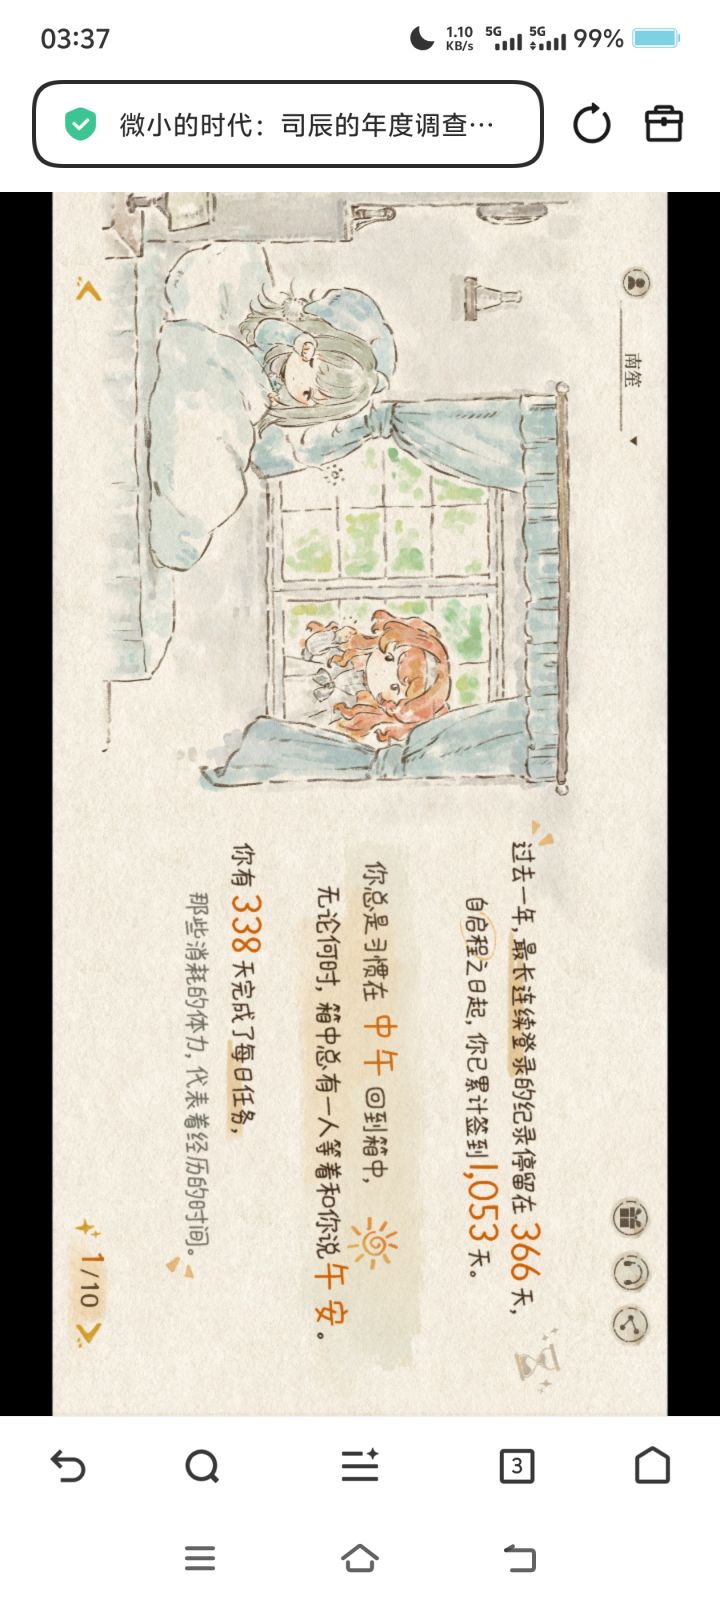 03:37
1.10 KB/s 5G 5G 99%
微小的时代：司辰的年度调查…
南笙
过去一年，最长连续登录的纪录停留在 366 天，
自启程之日起，你已累计签到 1,053 天。
你总是习惯在 中午 回到箱中，
无论何时，箱中总有一人等着和你说 午安。
你有 338 天完成了每日任务，
那些消耗的体力，代表着经历的时间。
1/10
3